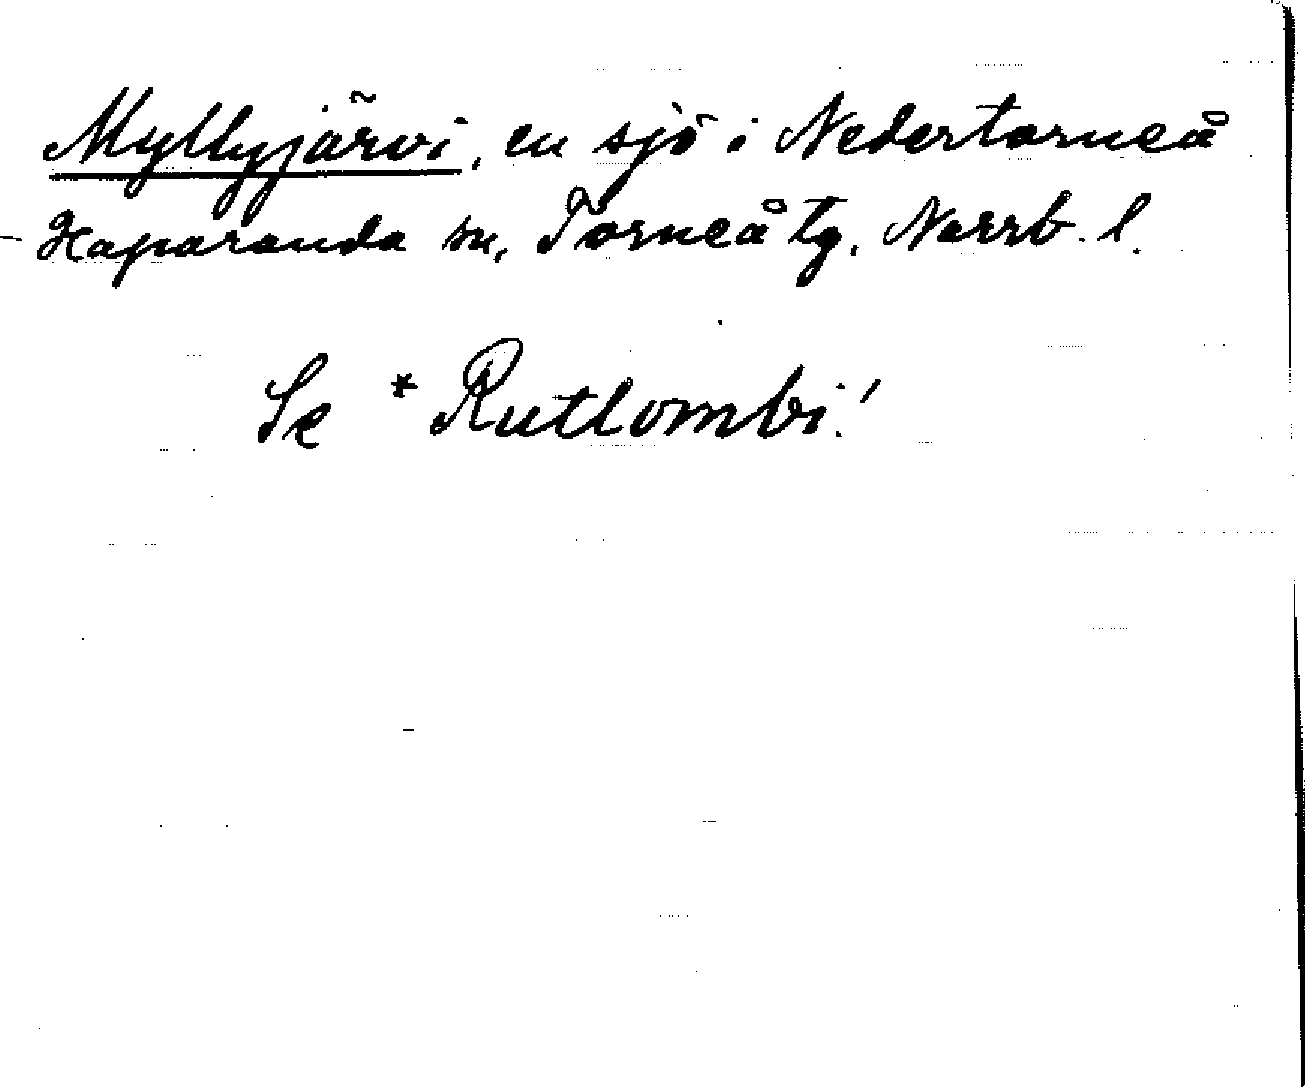 Myllyjärvi, en sjö i Nedertorneå
- Haparanda sn, Torneå tg. Norrb. l.
Se * Rutlombi!